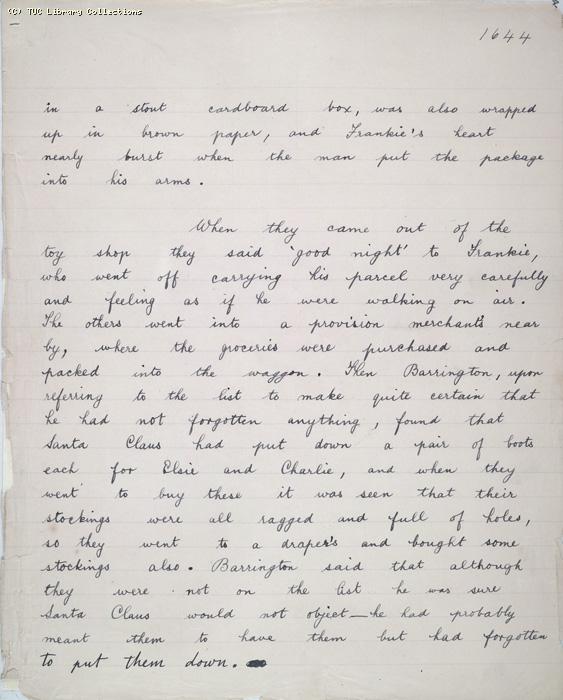 (C) TUC Library Collections
1644
in a stout cardboard box, was also wrapped
up in brown paper, and Frankie's heart
nearly burst when the man put the package
into his arms.
When they came out of the
toy shop they said 'good night' to Frankie,
who went off carrying his parcel very carefully
and feeling as if he were walking on air.
The others went into a provision merchant's near
by, where the groceries were purchased and
packed into the waggon. Then Barrington, upon
referring to the list to make quite certain that
he had not forgotten anything, found that
Santa Claus had put down a pair of boots
each for Elsie and Charlie, and when they
went to buy these it was seen that their
stockings were all ragged and full of holes,
so they went to a draper's and bought some
stockings also. Barrington said that although
they were not on the list he was sure
Santa Claus would not object—he had probably
meant them to have them but had forgotten
to put them down.